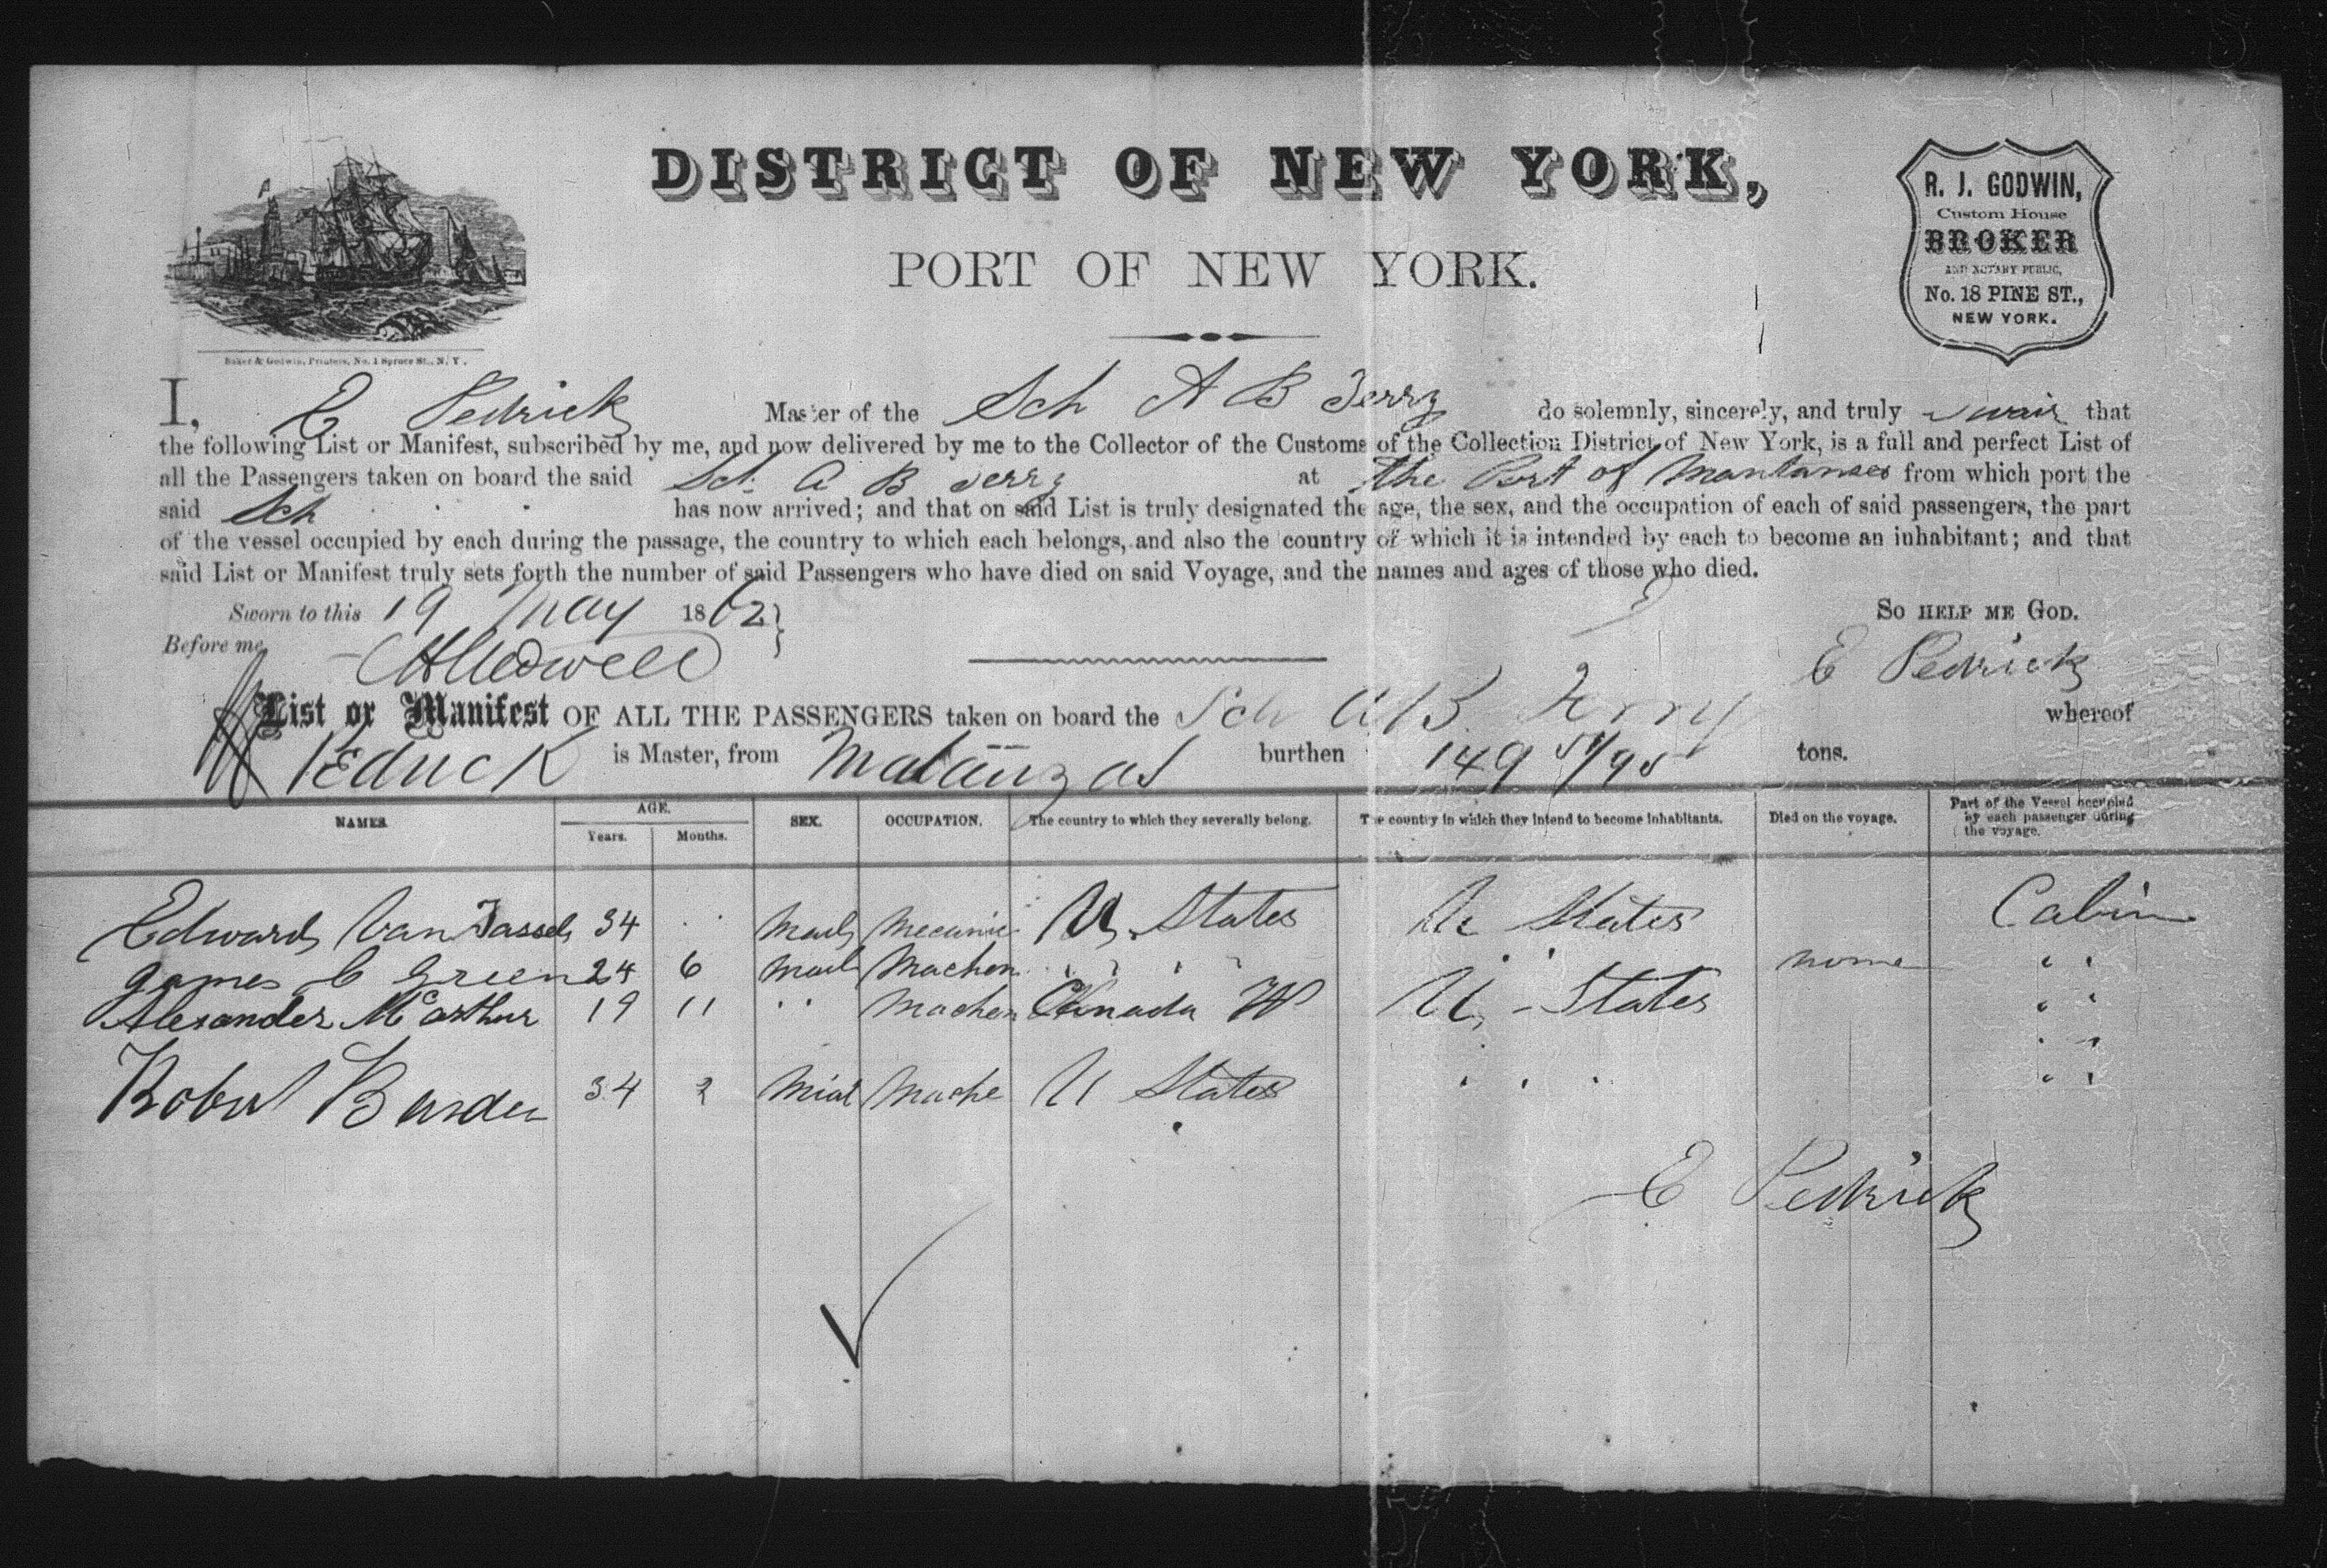 DISTRICT OF NEW YORK,
PORT OF NEW YORK.
R. J. GODWIN,
Custom House
BROKER
AND NOTARY PUBLIC,
No. 18 PINE ST.,
NEW YORK.
Baker & Godwin, Printers, No. 1 Spruce St., N. Y.
I, E Pedrick Master of the Sch A B Terry do solemnly, sincerely, and truly swair that
the following List or Manifest, subscribed by me, and now delivered by me to the Collector of the Customs of the Collection District of New York, is a full and perfect List of
all the Passengers taken on board the said Sch A B Terry at the Port of Mantanses from which port the
said Sch has now arrived; and that on said List is truly designated the age, the sex, and the occupation of each of said passengers, the part
of the vessel occupied by each during the passage, the country to which each belongs, and also the country of which it is intended by each to become an inhabitant; and that
said List or Manifest truly sets forth the number of said Passengers who have died on said Voyage, and the names and ages of those who died.
Sworn to this 19 May 1862 } SO HELP ME GOD.
Before me, E Pedrick
List or Manifest OF ALL THE PASSENGERS taken on board the Sch A B Terry whereof
Pedrick is Master, from Matanzas burthen 149 tons.
NAMES. AGE. SEX. OCCUPATION. The country to which they severally belong. The country in which they intend to become inhabitants. Died on the voyage. Part of the Vessel occupied by each passenger during the voyage.
Years. Months.
Edward Van Tassel 34 Mecanic U States U States Cabin
James C Green 24 6 Machen " " " " none " "
Alexander McArthur 19 11 " Machen Canada W U States " "
" "
Robert 34 2 Mache U States " " " " "
E Pedrick